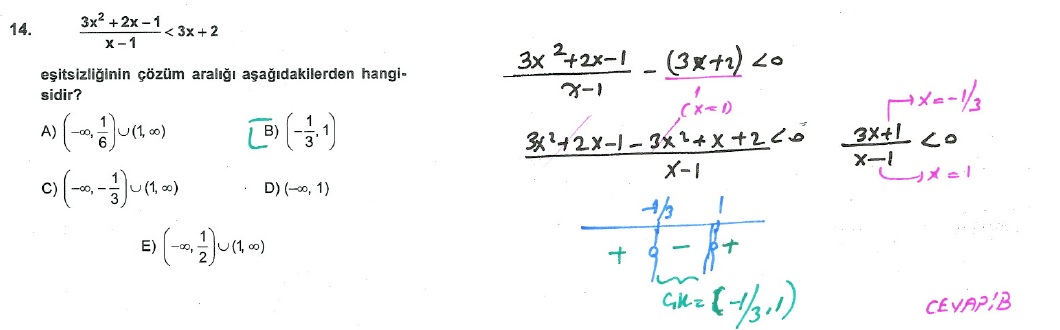 14. (3x² + 2x − 1)/(x − 1) < 3x + 2
eşitsizliğinin çözüm aralığı aşağıdakilerden hangi-
sidir?
A) (−∞, 1/6) ∪ (1, ∞) B) (−1/3, 1)
C) (−∞, −1/3) ∪ (1, ∞) D) (−∞, 1)
E) (−∞, 1/2) ∪ (1, ∞)
(3x² + 2x − 1)/(x − 1) − (3x + 2) < 0
(x = 1)
(3x² + 2x − 1 − 3x² + x + 2)/(x − 1) < 0
(3x + 1)/(x − 1) < 0
x = −1/3
x = 1
−1/3 1
+ − +
ÇK = (−1/3, 1)
CEVAP: B